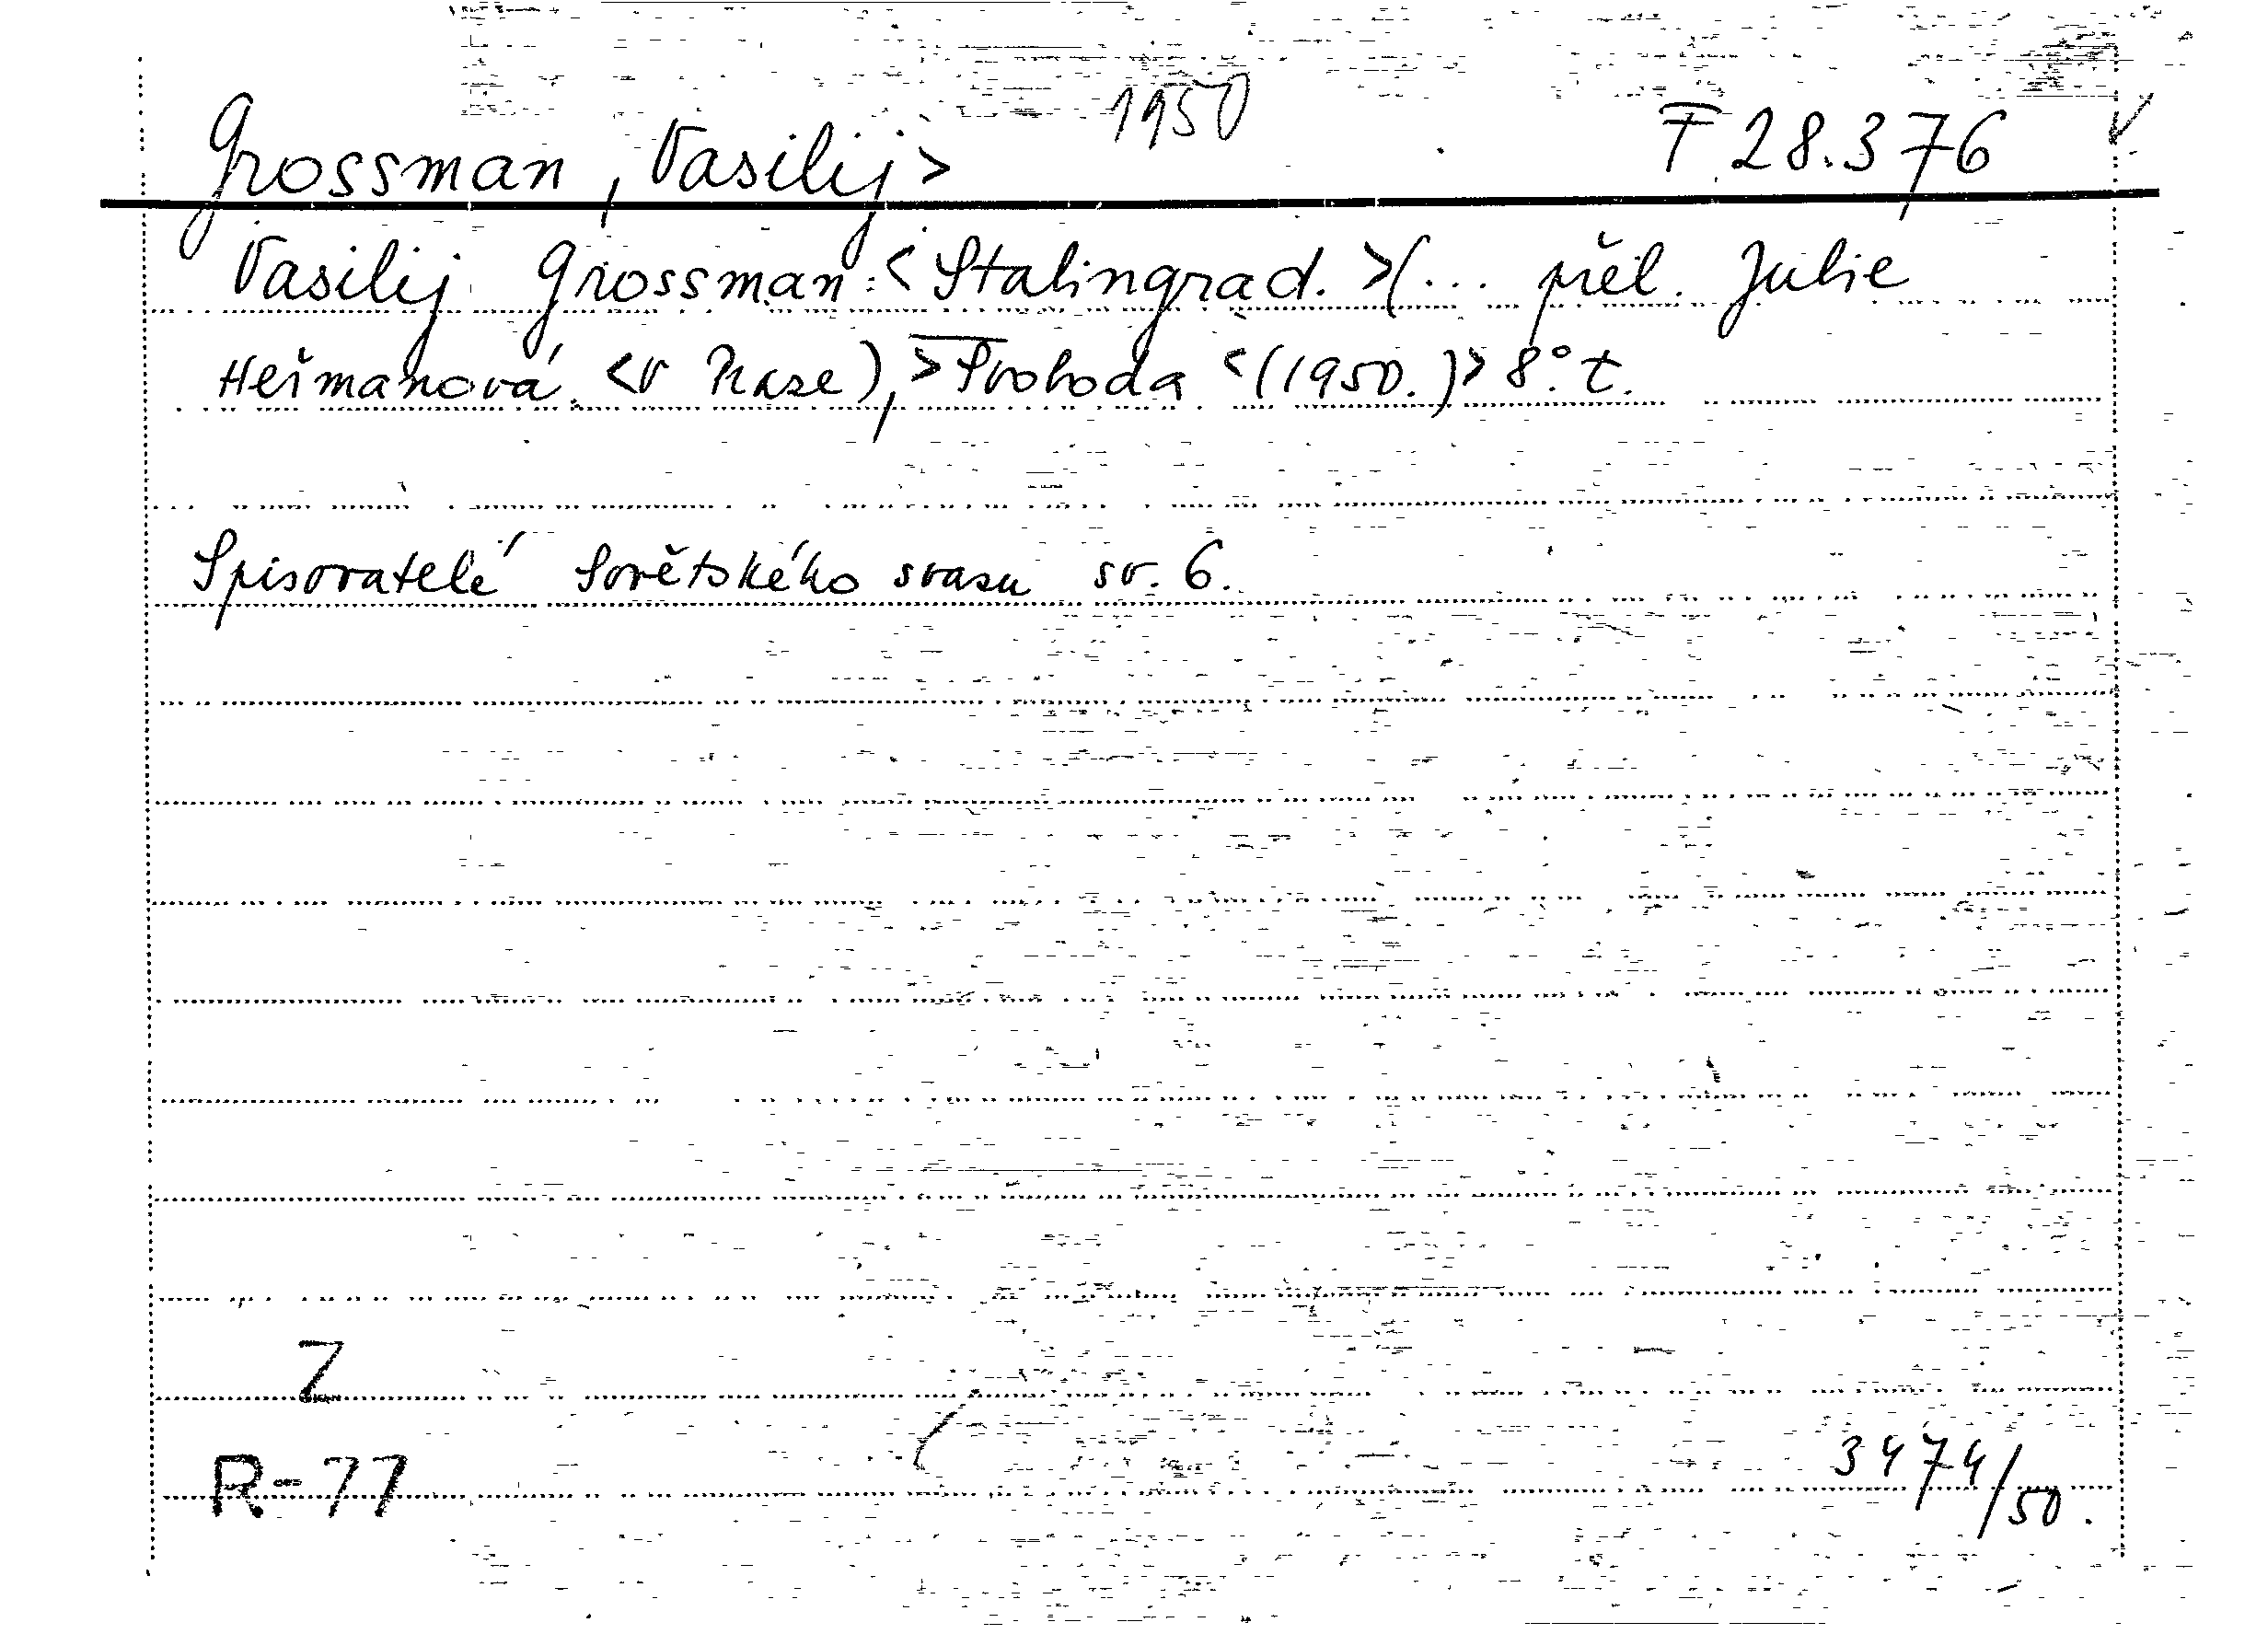 1950
Grossman, Vasilij> F 28.376
Vasilij Grossman:<Stalingrad.>(... přel. Julie
Heřmanová. <v Praze),>Svoboda <(1950.)> 8°. t.
Spisovatelé Sovětského svazu sv. 6.
Z
R-77 3474/50.